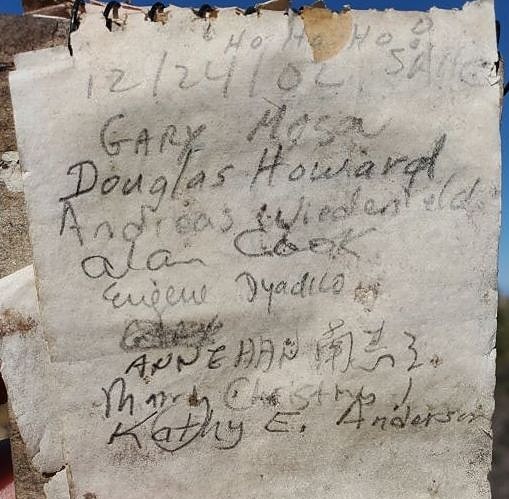 Ho Ho Ho
12/24/02
GARY
Douglas Howard
Andreas Wiedenfeld
alan Cook
Eugene Dyadilo
ANNE HAN 南
Marry Christmas!
Kathy E. Anderson